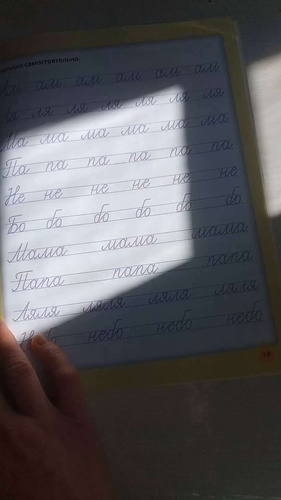 самостоятельно.
Ам ам ам ам ам ам
Ля ля ля ля ля ля ля
Ма ма ма ма ма ма
Па па па па па па
Не не не не не не
Бо бо бо бо бо бо
Мама мама мама
Папа папа папа
Ляля ляля ляля ляля
небо небо небо